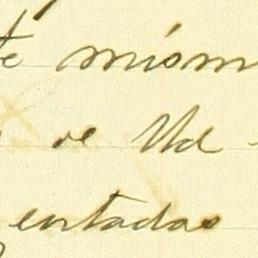 te mism
de Ud
entadas